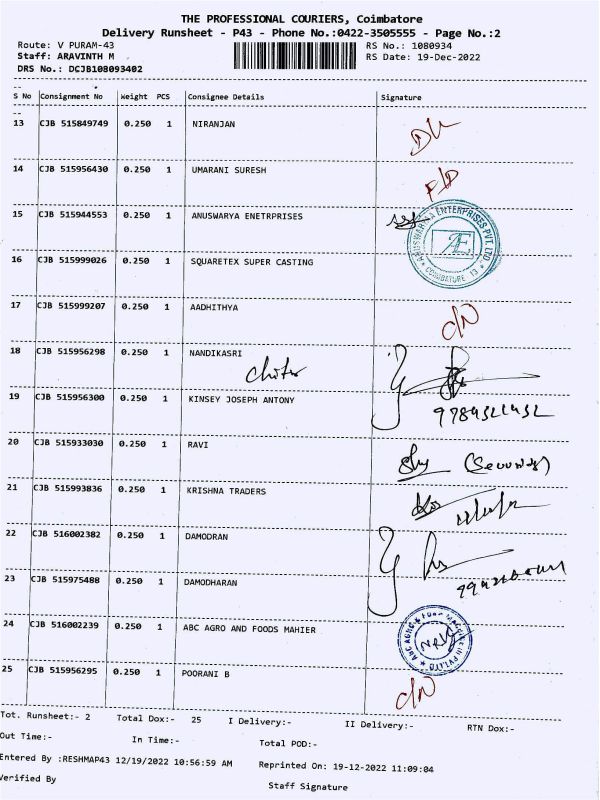 THE PROFESSIONAL COURIERS, Coimbatore
Delivery Runsheet - P43 - Phone No.:0422-3505555 - Page No.:2
Route: V PURAM-43 RS No.: 1080934
Staff: ARAVINTH M RS Date: 19-Dec-2022
DRS No.: DCJB108093402
S No Consignment No Weight PCS Consignee Details Signature
13 CJB 515849749 0.250 1 NIRANJAN
14 CJB 515956430 0.250 1 UMARANI SURESH
15 CJB 515944553 0.250 1 ANUSWARYA ENETRPRISES
ANUSWARYA ENTERPRISES PVT. LTD.
AE
COIMBATORE - 13
16 CJB 515999026 0.250 1 SQUARETEX SUPER CASTING
17 CJB 515999207 0.250 1 AADHITHYA
18 CJB 515956298 0.250 1 NANDIKASRI
19 CJB 515956300 0.250 1 KINSEY JOSEPH ANTONY
20 CJB 515933030 0.250 1 RAVI
21 CJB 515993836 0.250 1 KRISHNA TRADERS
22 CJB 516002382 0.250 1 DAMODRAN
23 CJB 515975488 0.250 1 DAMODHARAN
24 CJB 516002239 0.250 1 ABC AGRO AND FOODS MAHIER
25 CJB 515956295 0.250 1 POORANI B
Tot. Runsheet:- 2 Total Dox:- 25 I Delivery:- II Delivery:- RTN Dox:-
Out Time:- In Time:- Total POD:-
Entered By :RESHMAP43 12/19/2022 10:56:59 AM Reprinted On: 19-12-2022 11:09:04
Verified By Staff Signature